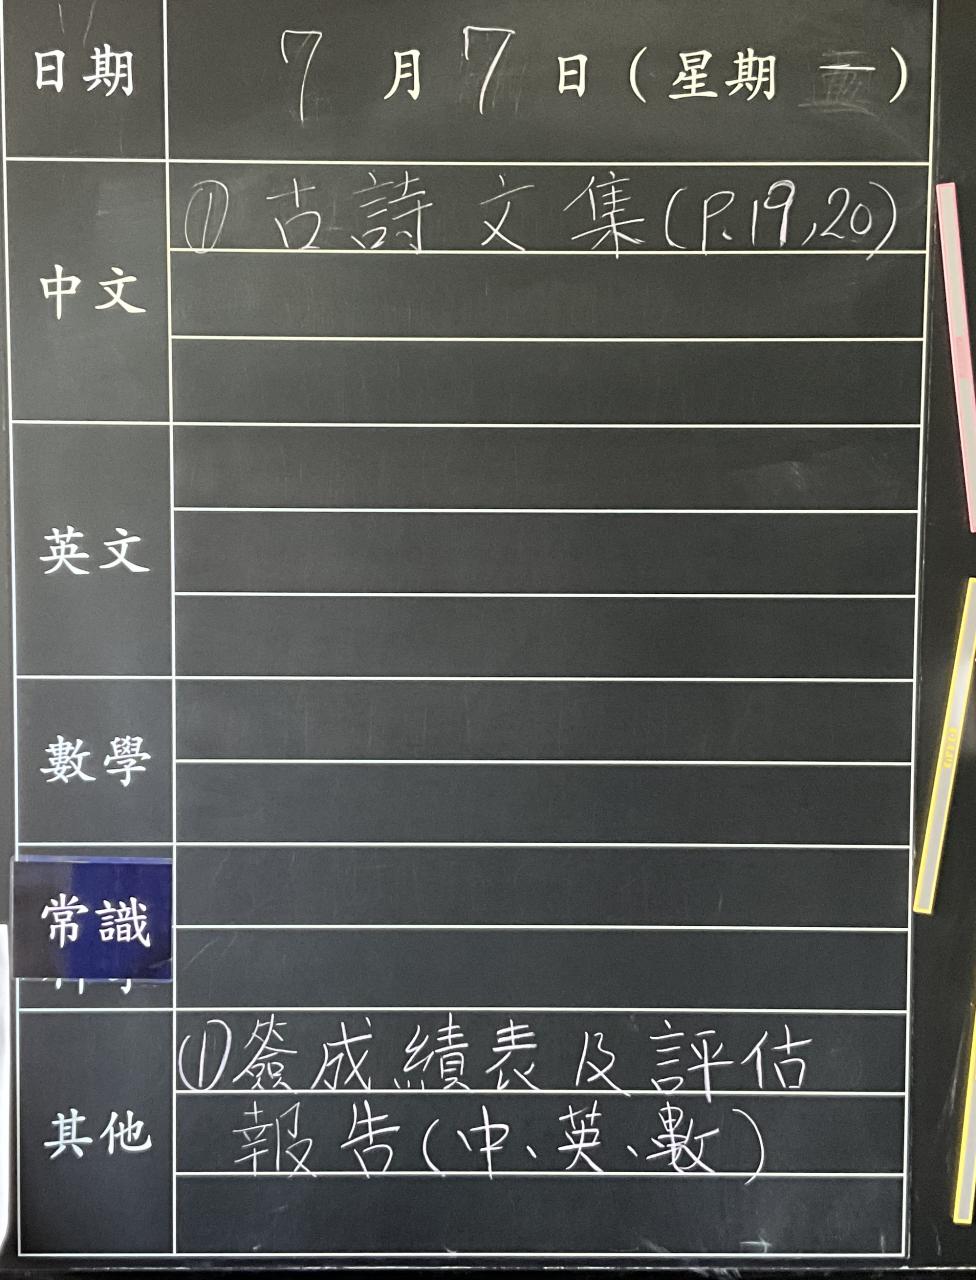 日期 7 月 7 日 ( 星期 一 )
中文
① 古詩文集 (P.19,20)
英文
數學
常識
其他
① 簽成績表及評估
報告 (中、英、數)